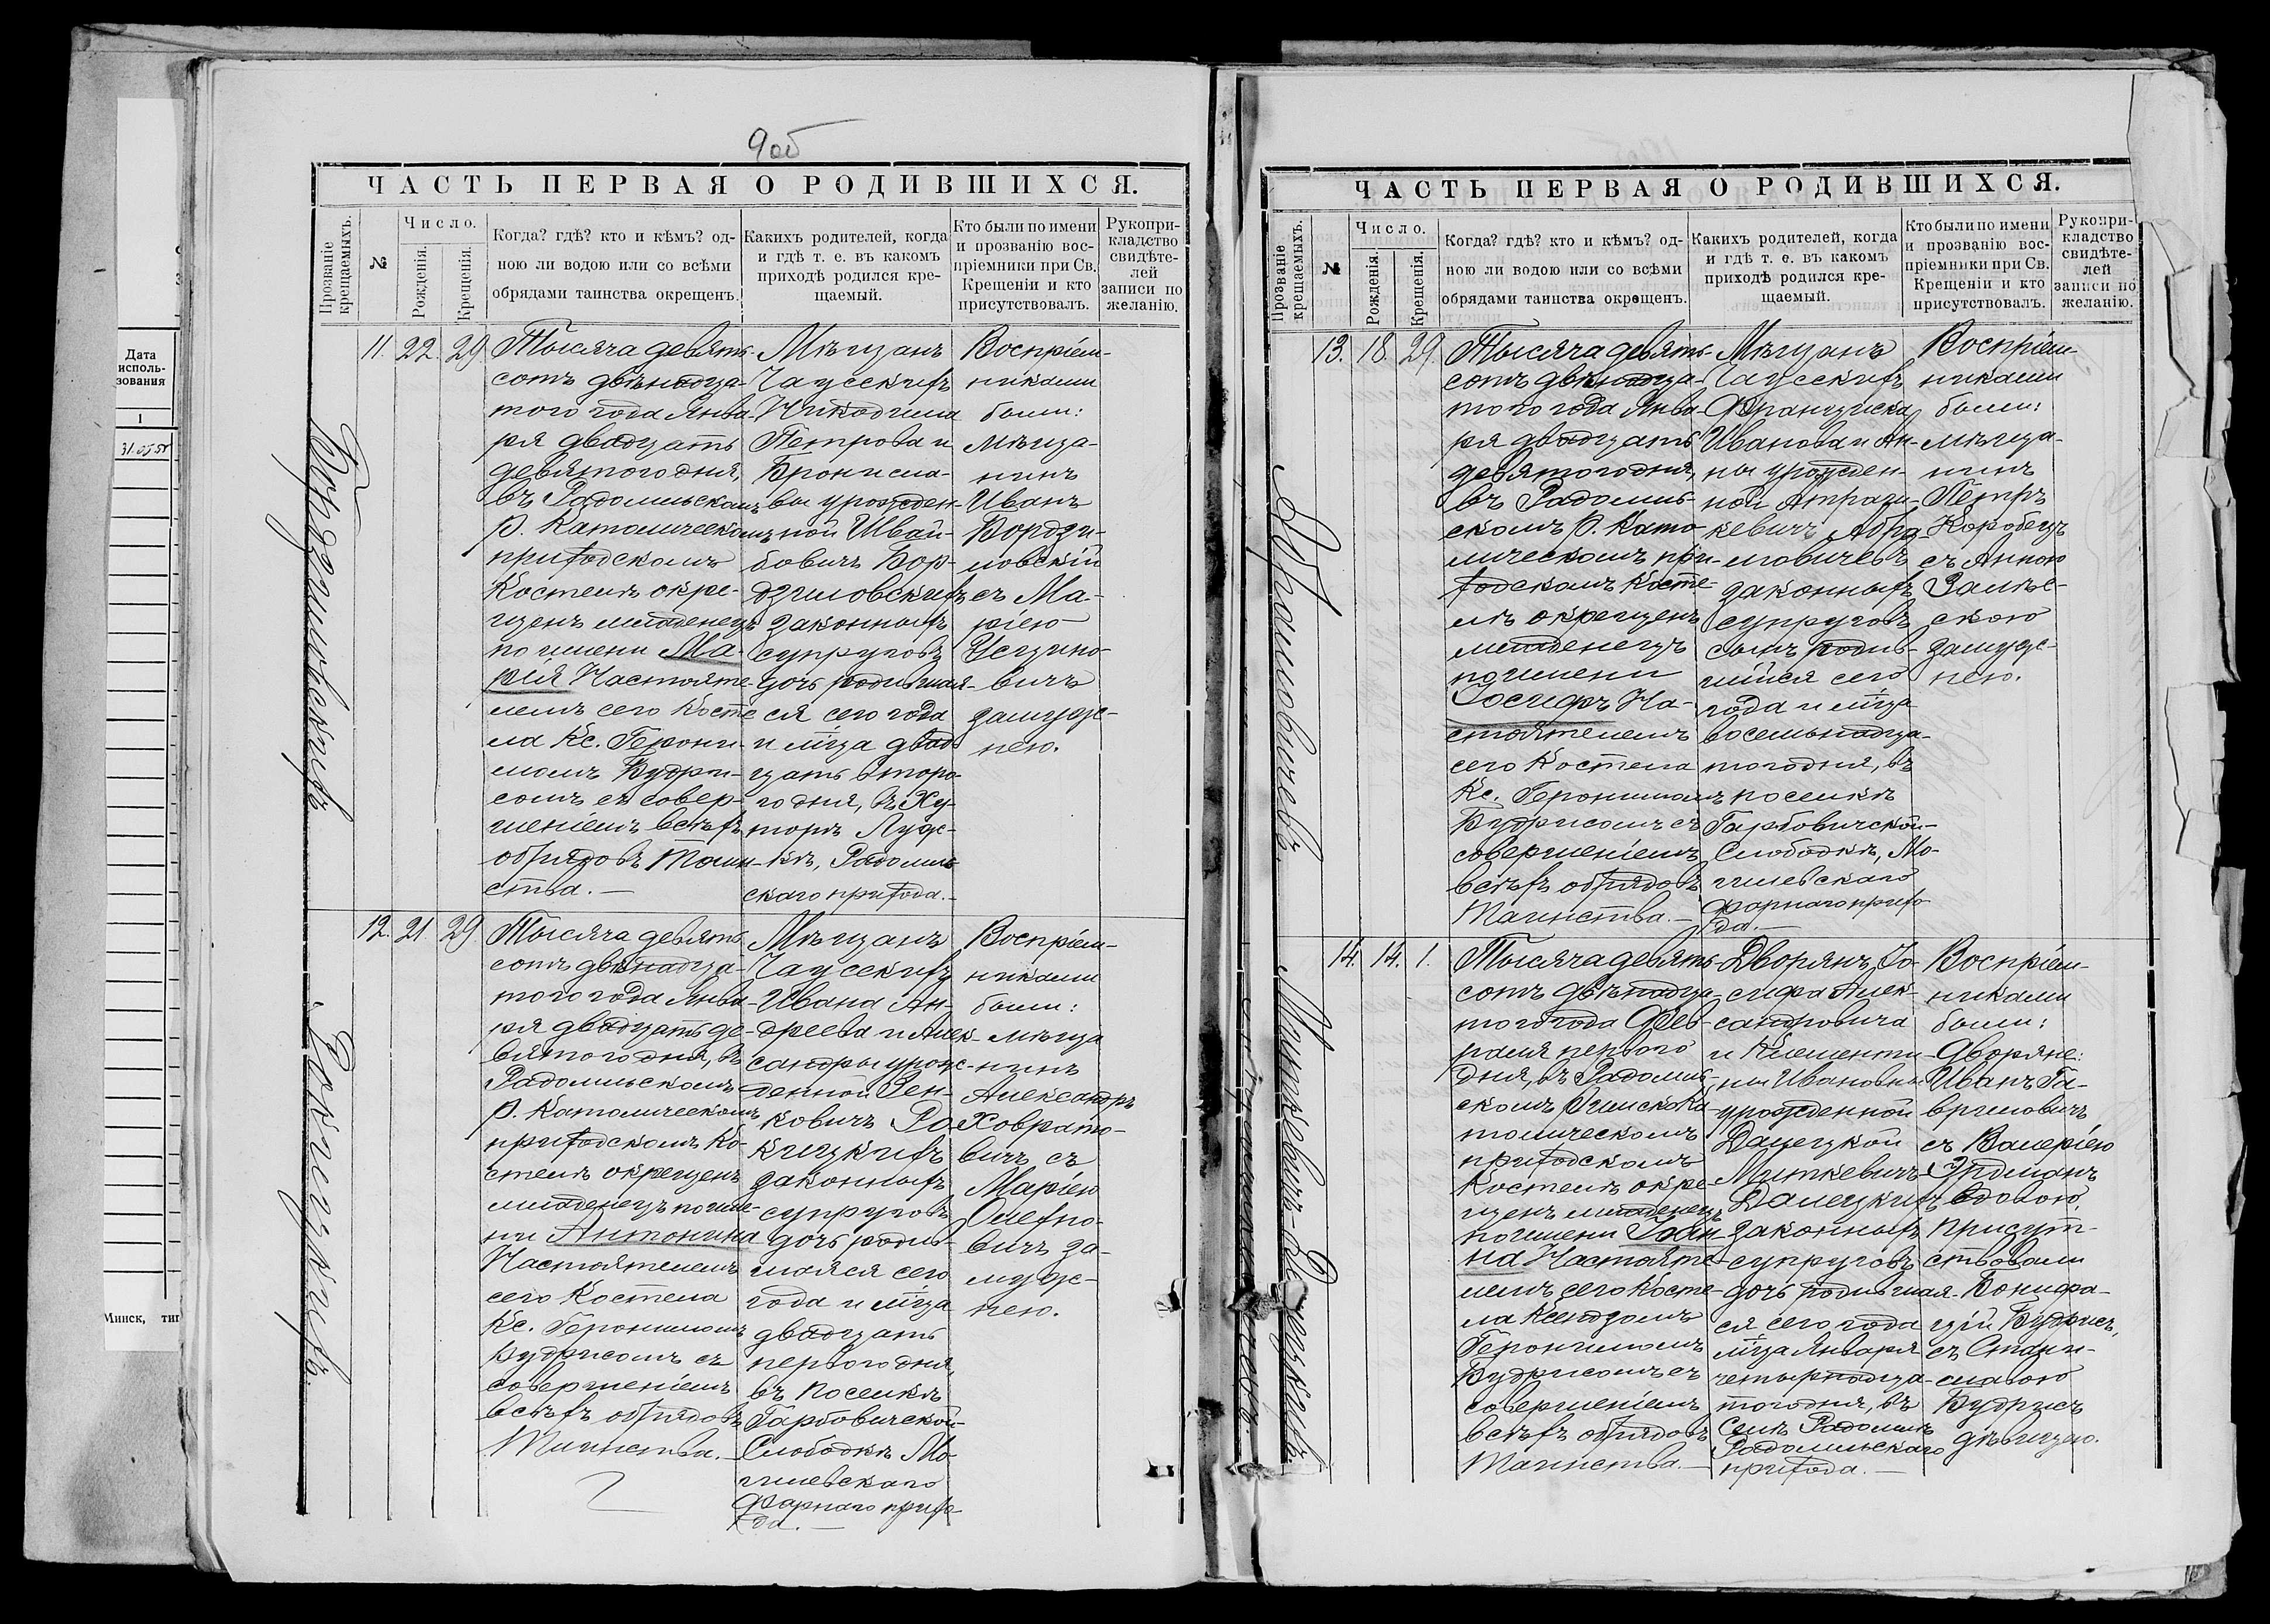 Дата
исполь-
зования
1
31.05.58
Минск, тип
9об
ЧАСТЬ ПЕРВАЯ О РОДИВШИХСЯ.
Прозваніе
крещаемыхъ.
№
Число.
Рожденія.
Крещенія.
Когда? гдѣ? кто и кѣмъ? од-
ною ли водою или со всѣми
обрядами таинства окрещенъ.
Какихъ родителей, когда
и гдѣ т. е. въ какомъ
приходѣ родился кре-
щаемый.
Кто были по имени
и прозванію вос-
пріемники при Св.
Крещеніи и кто
присутствовалъ.
Рукопри-
кладство
свидѣте-
лей
записи по
желанію.
Бордзиловскихъ
11. 22. 29.
Тысяча девять-
сотъ двѣнадца-
того года Янва-
ря двадцать
девятого дня,
въ Радомльскомъ
Р. Католическомъ
приходскомъ
Костелѣ окре-
щенъ младенецъ
по имени Ма-
рія Настояте-
лемъ сего Косте-
ла Кс. Герони-
момъ Будри-
сомъ съ совер-
шеніемъ всѣхъ
обрядовъ Таин-
ства.—
Мѣщанъ
Чаусскихъ
Никодима
Петрова и
Бронисла-
вы урожден-
ной Швай-
бовичъ Бор-
дзиловскихъ
законныхъ
супруговъ
дочь родившая-
ся сего года
и м̃ца двад-
цать второ-
го дня, въ Ху-
торѣ Луж-
кѣ, Радомль-
скаго прихода.—
Воспріем-
никами
были:
мѣща-
нинъ
Иванъ
Бордзи-
ловскій
съ Ма-
ріею
Усцино-
вичъ
замуж-
нею.
Рокицкихъ.
12. 21. 29
Тысяча девять
сотъ двѣнадца-
того года Янва-
ря двадцать де-
вятого дня, въ
Радомльскомъ
Р. Католическомъ
приходскомъ Ко-
стелѣ окрещенъ
младенецъ по име-
ни Антонина
Настоятелемъ
сего Костела
Кс. Геронимомъ
Будрисомъ съ
совершеніемъ
всѣхъ обрядовъ
Таинства.—
Мѣщанъ
Чаусскихъ
Ивана Ан-
дреева и Алек-
сандры урож-
денной Зен-
ковичъ Ро-
кицкихъ
законныхъ
супруговъ
дочь родив-
шаяся сего
года и м̃ца
двадцать
перваго дня,
въ поселкѣ
Гарбовичской-
Слободкѣ Мо-
гилевскаго
фарнаго прихо-
да.—
Воспріем-
никами
были:
мѣща
нинъ
Александръ
Ховрато-
вичъ съ
Маріею
Олехно-
вичъ за-
муж-
нею.
ЧАСТЬ ПЕРВАЯ О РОДИВШИХСЯ.
Прозваніе
крещаемыхъ.
№
Число.
Рожденія.
Крещенія.
Когда? гдѣ? кто и кѣмъ? од-
ною ли водою или со всѣми
обрядами таинства окрещенъ.
Какихъ родителей, когда
и гдѣ т. е. въ какомъ
приходѣ родился кре-
щаемый.
Кто были по имени
и прозванію вос-
пріемники при Св.
Крещеніи и кто
присутствовалъ.
Рукопри-
кладство
свидѣте-
лей
записи по
желанію.
Абрамовичевъ.
13. 18. 29.
Тысяча девять-
сотъ двѣнадца-
того года Янва-
ря двадцать
девятого дня,
въ Радомль-
скомъ Р. Като-
лическомъ при-
ходскомъ Косте-
лѣ окрещенъ
младенецъ
по имени
Іосифъ На-
стоятелемъ
сего Костела
Кс. Геронимомъ
Будрисомъ съ
совершеніемъ
всѣхъ обрядовъ
Таинства.—
Мѣщанъ
Чаусскихъ
Франциска
Иванова и Ан-
ны урожден-
ной Атрази-
кевичъ Абра-
мовичевъ
законныхъ
супруговъ
сынъ родив-
шійся сего
года и м̃ца
восемьнадца-
того дня, въ
поселкѣ
Гарбовичской-
Слободкѣ, Мо-
гилевскаго
фарнаго прихо-
да.—
Воспріем-
никами
были:
мѣща-
нинъ
Петръ
Коробецъ
съ Анною
Залѣс-
скою
замуж-
нею.
Миткевичъ-Далецкихъ.
14. 14. 1.
Тысяча девять
сотъ двѣнадца-
того года Фев-
раля перваго
дня, въ Радомль-
скомъ Римско Ка-
толическомъ
приходскомъ
Костелѣ окре-
щенъ младенецъ
по имени Іоан-
на Настояте-
лемъ сего Косте-
ла Ксендзомъ
Геронимомъ
Будрисомъ съ
совершеніемъ
всѣхъ обрядовъ
Таинства.—
Дворянъ Іо-
сифа Алек-
сандровича
и Клементи-
ны Ивановны
урожденной
Далецкой
Миткевичъ-
Далецкихъ
законныхъ
супруговъ
дочь родившая-
ся сего года
м̃ца Января
четырнадца-
того дня, въ
Селѣ Радомль
Радомльскаго
прихода.—
Воспріем-
никами
были:
дворяне:
Иванъ Га-
вриловичъ
съ Валеріею
Эрдманъ
вдовою,
присут-
ствовали
Бонифа-
цій Будрисъ,
съ Стани-
славою
Будрисъ
дѣвицею.